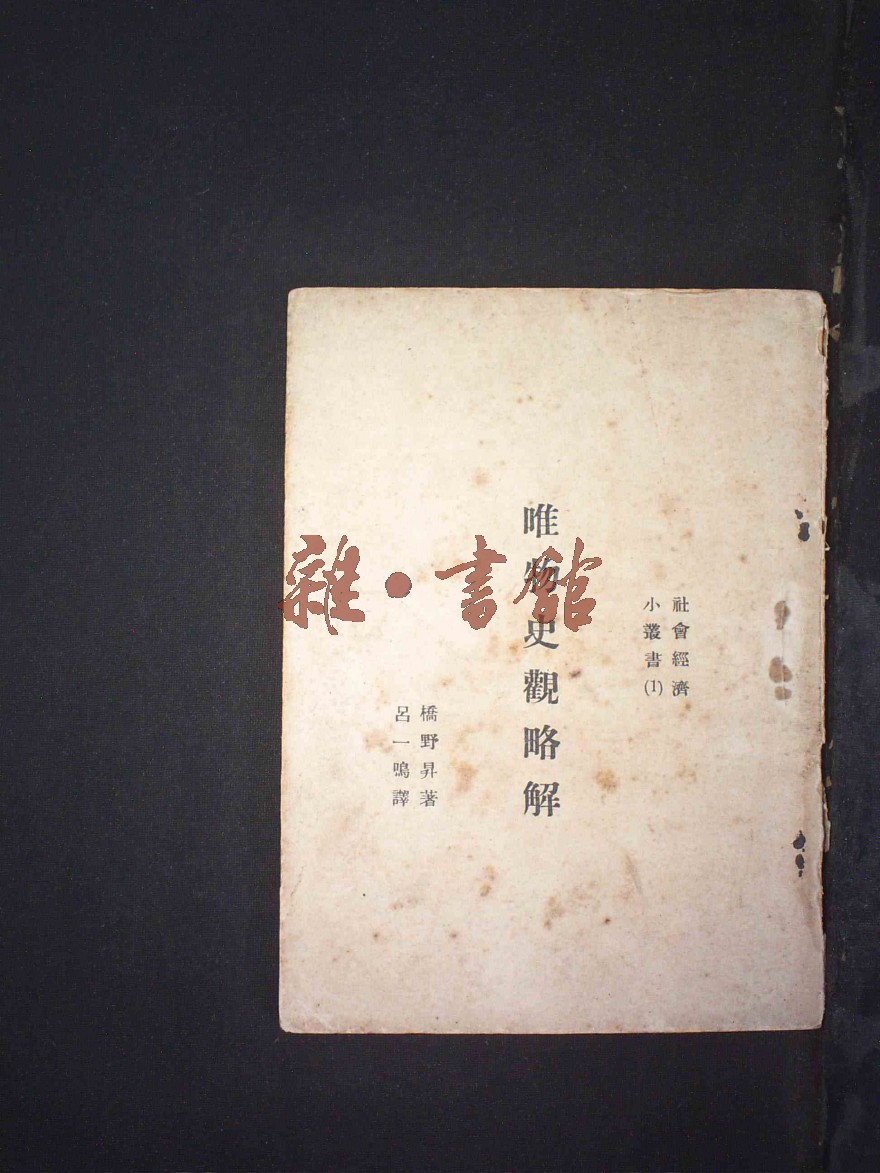 社會經濟
小叢書(1)
唯物史觀略解
橋野昇著
呂一鳴譯
雜·書館